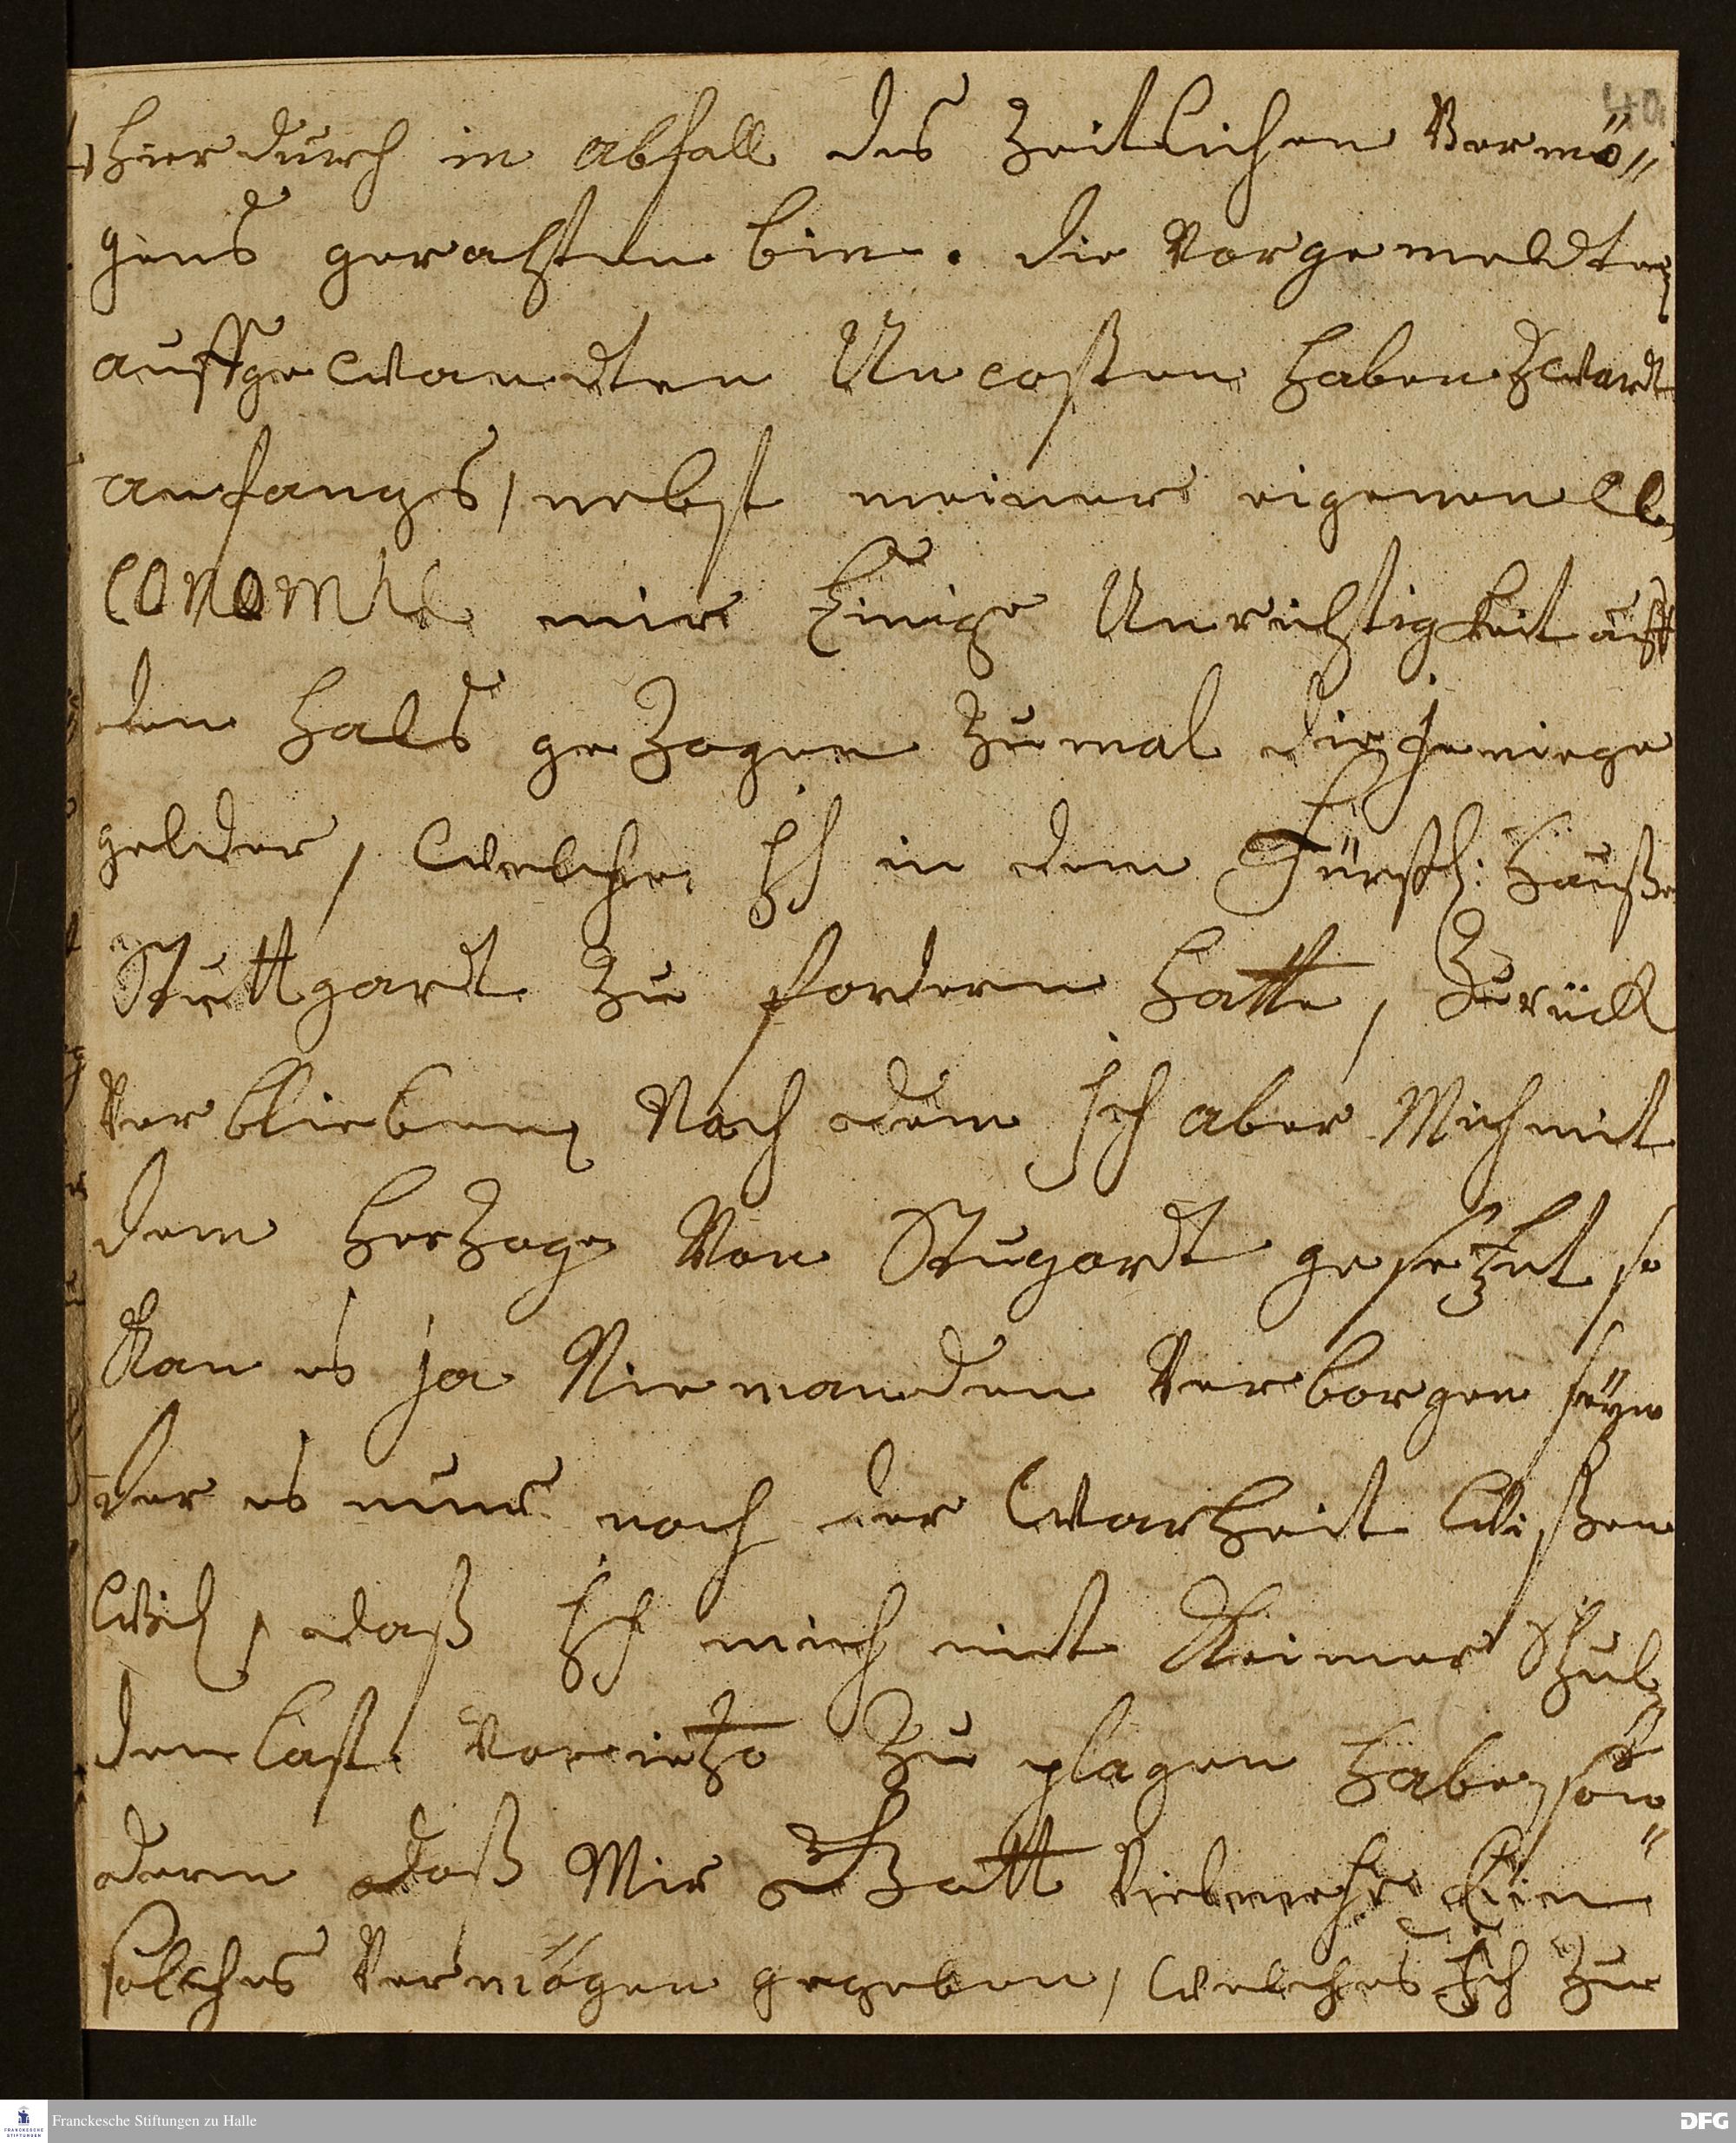 40
hierdurch in abfall des Zeitlichen Vermö„
gens gerahten bin. die Vorgemeldten
auffgewandten Uncosten haben Zwardt
anfangs, nebst meiner eigenen
conomie mir Einige Unrichtigkeit auff
den halß geZogen Zumal diejeniege
gelder, welche Ich in dem Fürstl: Hauße
Stuttgardt Zu fordern hatte, Zurück
Verblieben Nach dem Ich aber Mich mit
dem HerZoge Von Stugardt gesetzet so
Kan es ja Niemanden Verborgen seÿn
der es nur nach der Warheit Wißen
Wil, daß Ich mich mit Keiner Schul
denlast Vorietzo Zu plagen habe, son„
dern daß Mir Gott Vielmehr Ein
solches Vermögen gegeben, welches Ich Zur
Franckesche Stiftungen zu Halle
FRANCKESCHE STIFTUNGEN
DFG